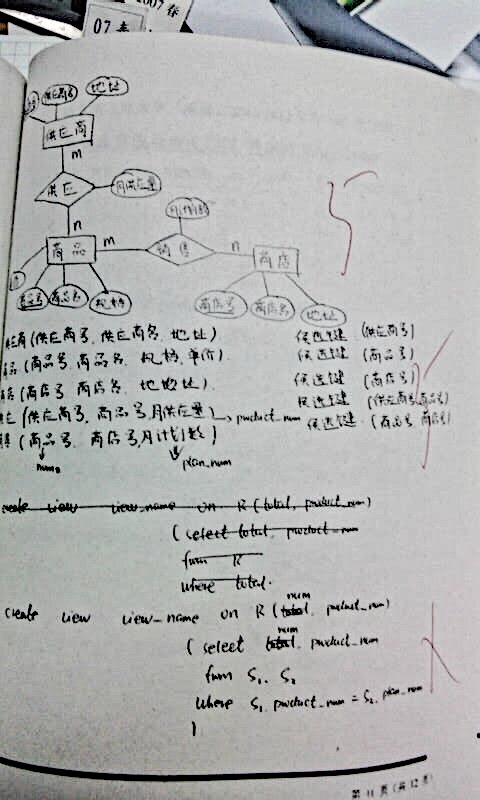 2007春
07春
供应商号
地址
供应商
m
供应
月供应量
n
月计划数
商品
m
销售
n
商店
商品号
商品名
规格
商店号
商店名
地址
应商(供应商号, 供应商名, 地址) 候选键 (供应商号)
品(商品号, 商品名, 规格, 单价) 候选键 (商品号)
店(商店号 商店名, 地址) 候选键 (商店号)
应(供应商号, 商品号, 月供应量) → product_num 候选键 (供应商号, 商品号)
售(商品号, 商店号, 月计划数) 候选键 (商品号 商店号)
plan_num
create view view_name on R (total, product_num)
(select total, product_num
from R
where total.
create view view_name on R (num, product_num)
(select num, product_num
from S1, S2
where S1.product_num = S2.plan_num
)
5
第 11 页 (共 12 页)